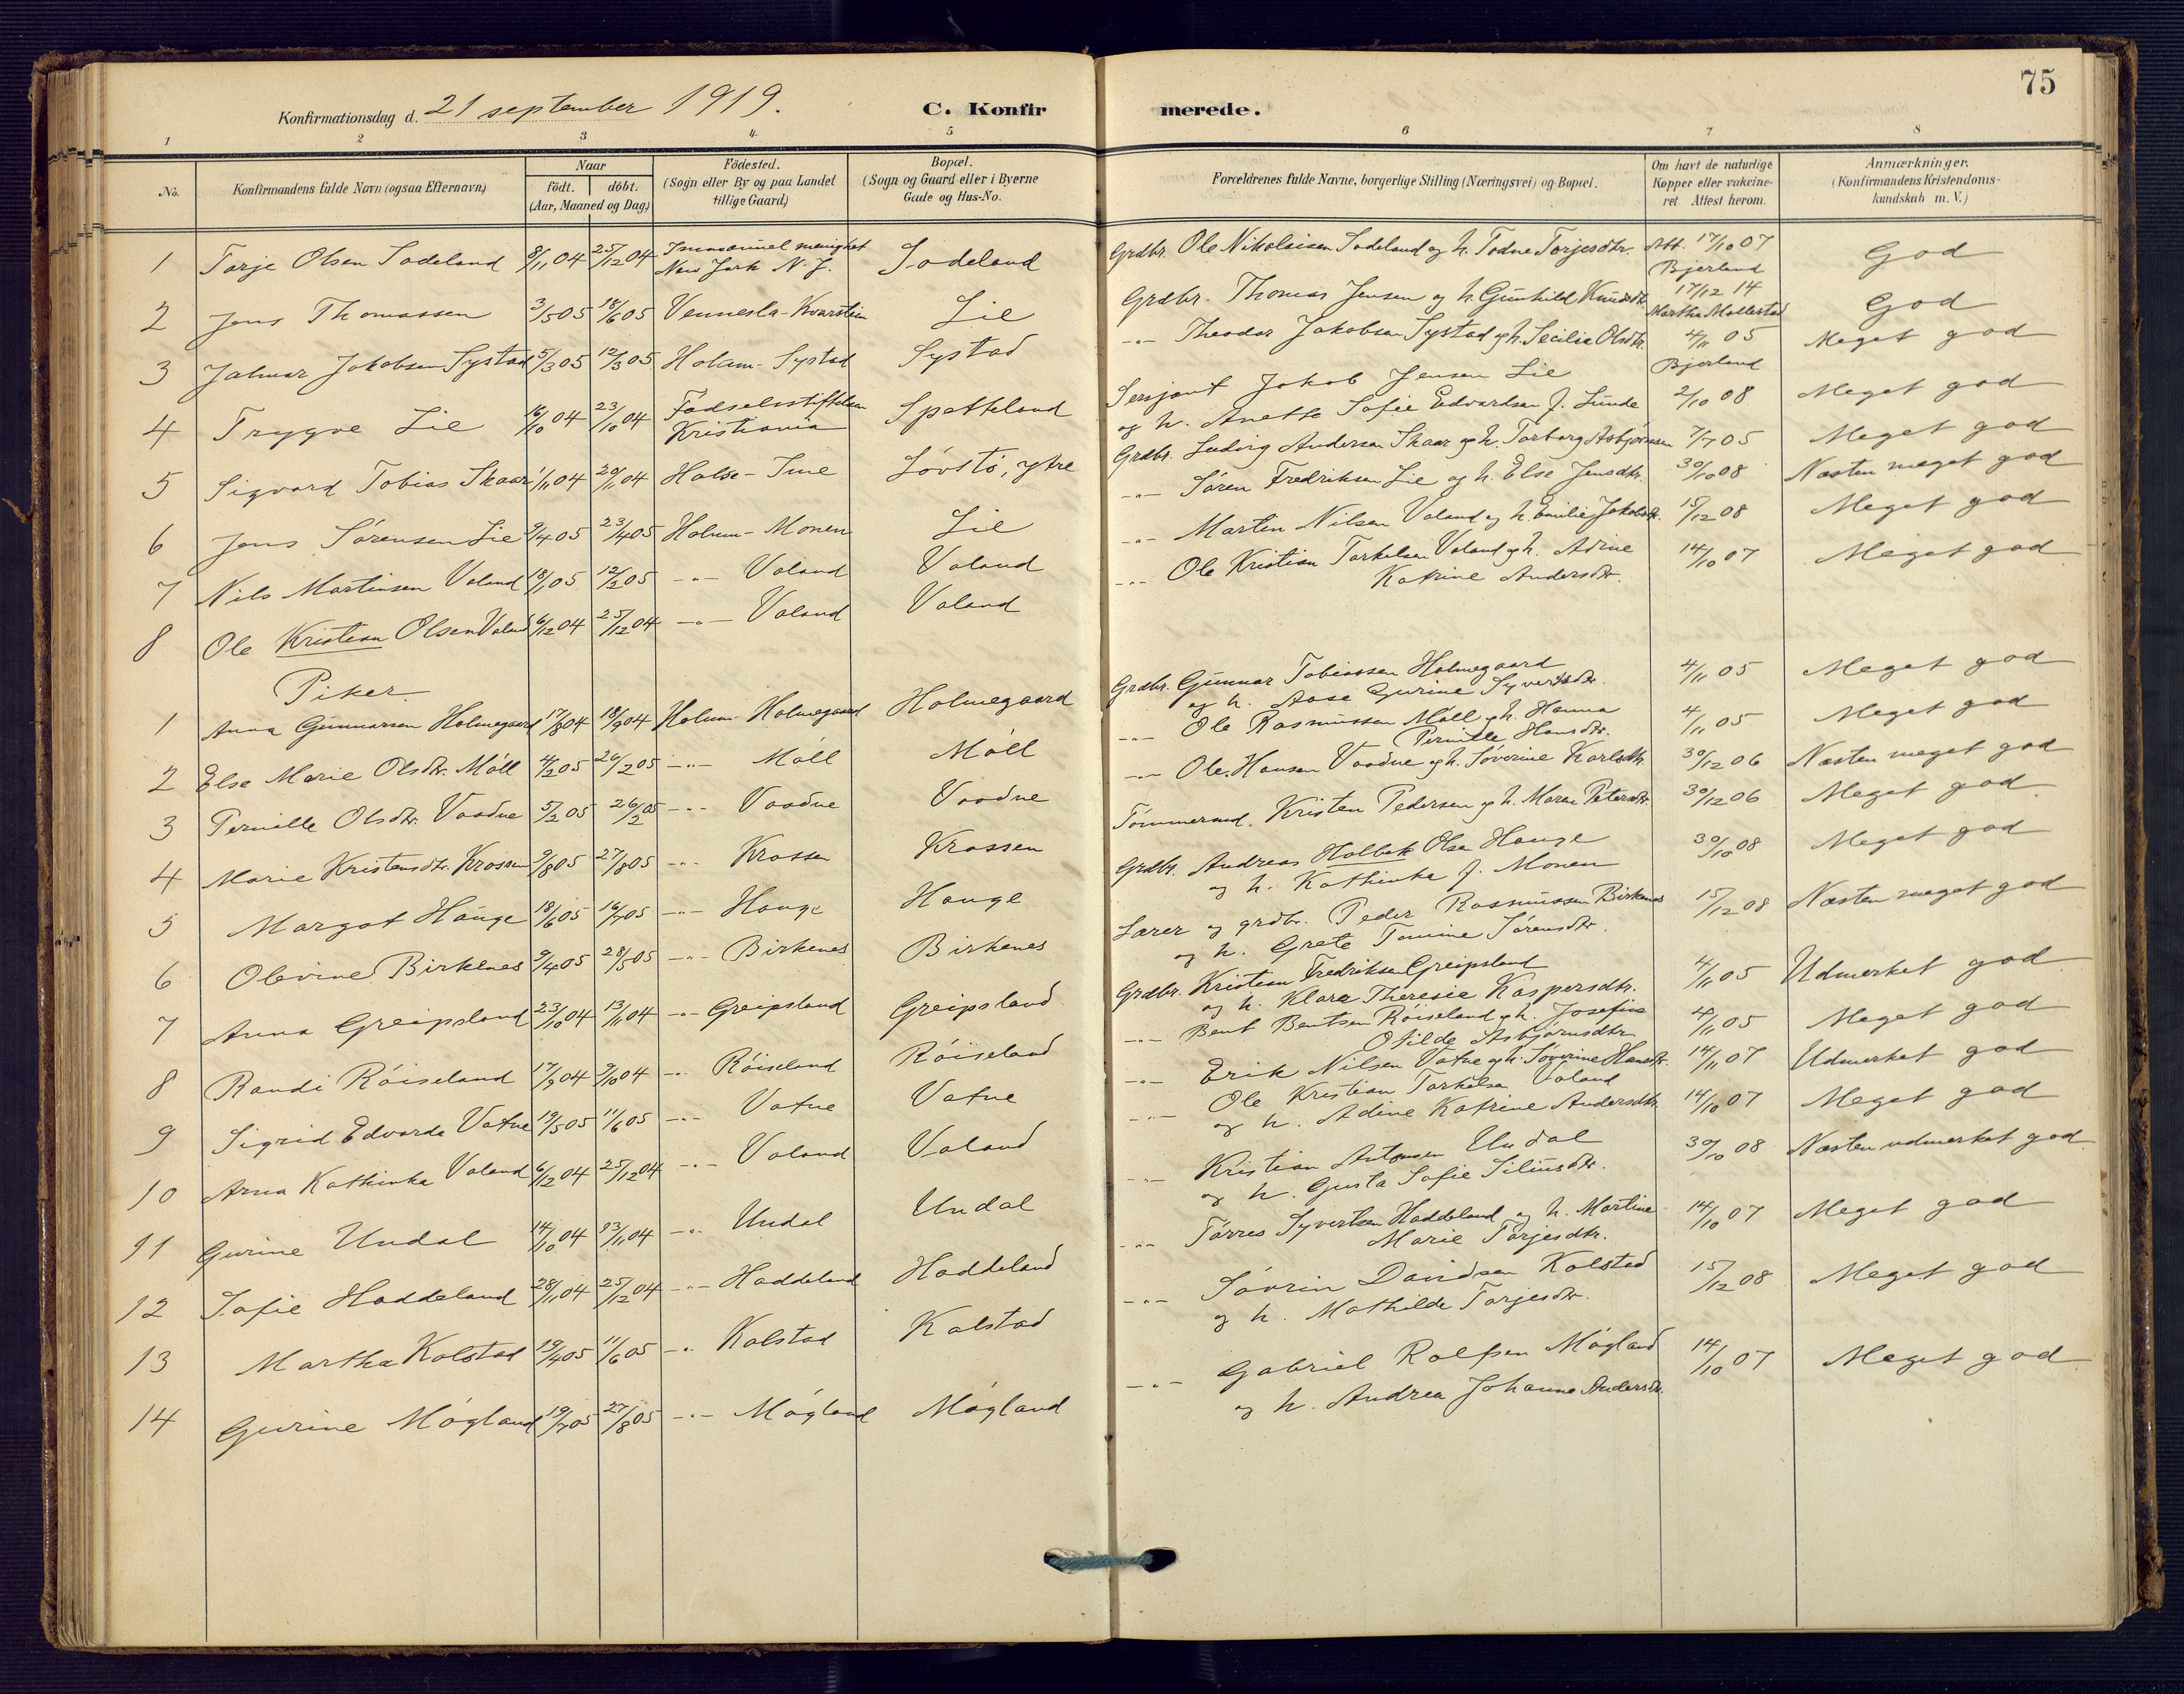 75
Konfirmationsdag d. 21 september 1919. C. Konfirmerede.
1 2 3 4 5 6 7 8
No. Konfirmandens fulde Navn (ogsaa Efternavn) Naar födt. döbt. (Aar, Maaned og Dag) Födested. (Sogn eller By og paa Landet tillige Gaard) Bopæl. (Sogn og Gaard eller i Byerne Gade og Hus-No. Forældrenes fulde Navne, borgerlige Stilling (Næringsvei) og Bopæl. Om havt de naturlige Kopper eller vakcineret. Attest herom. Anmærkninger. (Konfirmandens Kristendomskundskab m. V.)
1 Torje Olsen Sodeland 9/11 04 25/12 04 Immanuel menighet New York N. J. Sodeland Grdbr. Ole Nikolaisen Sodeland og h. Todne Torjesdtr. Att. 17/10 07 Bjerland God
2 Jens Thomassen 3/5 05 18/6 05 Vennesla-Kvarstein Lie Grdbr. Thomas Jensen og h. Gunhild Knudsdtr. 17/12 14 Martha Mollestad God
3 Jalmar Jakobsen Systad 5/3 05 12/3 05 Holum-Systad Systad -"- Theodor Jakobsen Systad og h. Secilie Olsdtr. 4/11 05 Bjerland Meget god
4 Trygve Lie 16/10 04 23/10 04 Fødselsstiftelsen Kristiania Spetteland Sersjant Jakob Jensen Lie og h. Anette Sofie Edvardsen f. Lunde 2/10 08 Meget god
5 Sigvard Tobias Skaar 1/11 04 20/11 04 Halse-Ime Løvstø, ytre Grdbr. Ludvig Andersen Skaar og h. Torborg Asbjørnsen 7/7 05 Meget god
6 Jens Sørensen Lie 9/4 05 23/4 05 Holum-Monen Lie -"- Søren Fredriksen Lie og h. Else Jensdtr. 30/10 08 Næsten meget god
7 Nils Martinsen Valand 18/1 05 12/2 05 -"- Valand Valand -"- Martin Nilsen Valand og h. Emilie Jakobsdtr. 15/12 08 Meget god
8 Ole Kristian Olsen Valand 6/12 04 25/12 04 -"- Valand Valand -"- Ole Kristian Torkelsen Valand og h. Adine Katrine Andersdtr. 14/10 07 Meget god
Piker
1 Anna Gunnarsen Holmegaard 17/8 04 18/9 04 Holum-Holmegaard Holmegaard Grdbr. Gunnar Tobiassen Holmegaard og h. Aase Gurine Syvertsdtr. 4/11 05 Meget god
2 Else Marie Olsdtr. Møll 4/2 05 26/2 05 -"- Møll Møll -"- Ole Rasmussen Møll og h. Hanna Pernille Hansdtr. 4/11 05 Meget god
3 Pernille Olsdtr. Vaadne 5/2 05 26/2 05 -"- Vaadne Vaadne -"- Ole Hansen Vaadne og h. Søverine Karlsdtr. 30/12 06 Næsten meget god
4 Marie Kristensdtr. Krossen 9/8 05 27/8 05 -"- Krossen Krossen Tømmermd. Kristen Pedersen og h. Maren Petersdtr. 30/12 06 Meget god
5 Margot Hauge 18/6 05 16/7 05 -"- Hauge Hauge Grdbr. Andreas Holbek Olsen Hauge og h. Kathinka f. Monen 30/10 08 Meget god
6 Olevine Birkenes 9/4 05 28/5 05 -"- Birkenes Birkenes Lærer og grdbr. Peder Rasmussen Birkenes og h. Grete Tomine Sørensdtr. 15/12 08 Næsten meget god
7 Anna Greipsland 23/10 04 13/11 04 -"- Greipsland Greipsland Grdbr. Kristian Fredriksen Greipsland og h. Klara Theresie Kaspersdtr. 4/11 05 Udmerket god
8 Randi Røiseland 17/9 04 9/10 04 -"- Røiseland Røiseland -"- Bent Bentsen Røiseland og h. Josefine Otilde Asbjørnsdtr. 4/11 05 Meget god
9 Sigrid Edvarda Vatne 19/5 05 11/6 05 -"- Vatne Vatne -"- Erik Nilsen Vatne og h. Søverine Hansdtr. 14/11 07 Udmerket god
10 Arna Kathinka Valand 6/12 04 25/12 04 -"- Valand Valand -"- Ole Kristian Torkelsen Valand og h. Adine Katrine Andersdtr. 14/10 07 Meget god
11 Gurine Undal 14/10 04 13/11 04 -"- Undal Undal -"- Kristian Antonsen Undal og h. Gusta Sofie Siliusdtr. 30/10 08 Næsten udmerket god
12 Sofie Haddeland 28/11 04 25/12 04 -"- Haddeland Haddeland -"- Tørres Syvertsen Haddeland og h. Martine Marie Torjesdtr. 14/10 07 Meget god
13 Martha Kolstad 19/4 05 11/6 05 -"- Kolstad Kolstad -"- Søvrin Davidsen Kolstad og h. Mathilde Torjesdtr. 15/12 08 Meget god
14 Gurine Møgland 19/7 05 27/8 05 -"- Møgland Møgland -"- Gabriel Rolfsen Møgland og h. Andrea Johanne Andersdtr. 14/10 07 Meget god